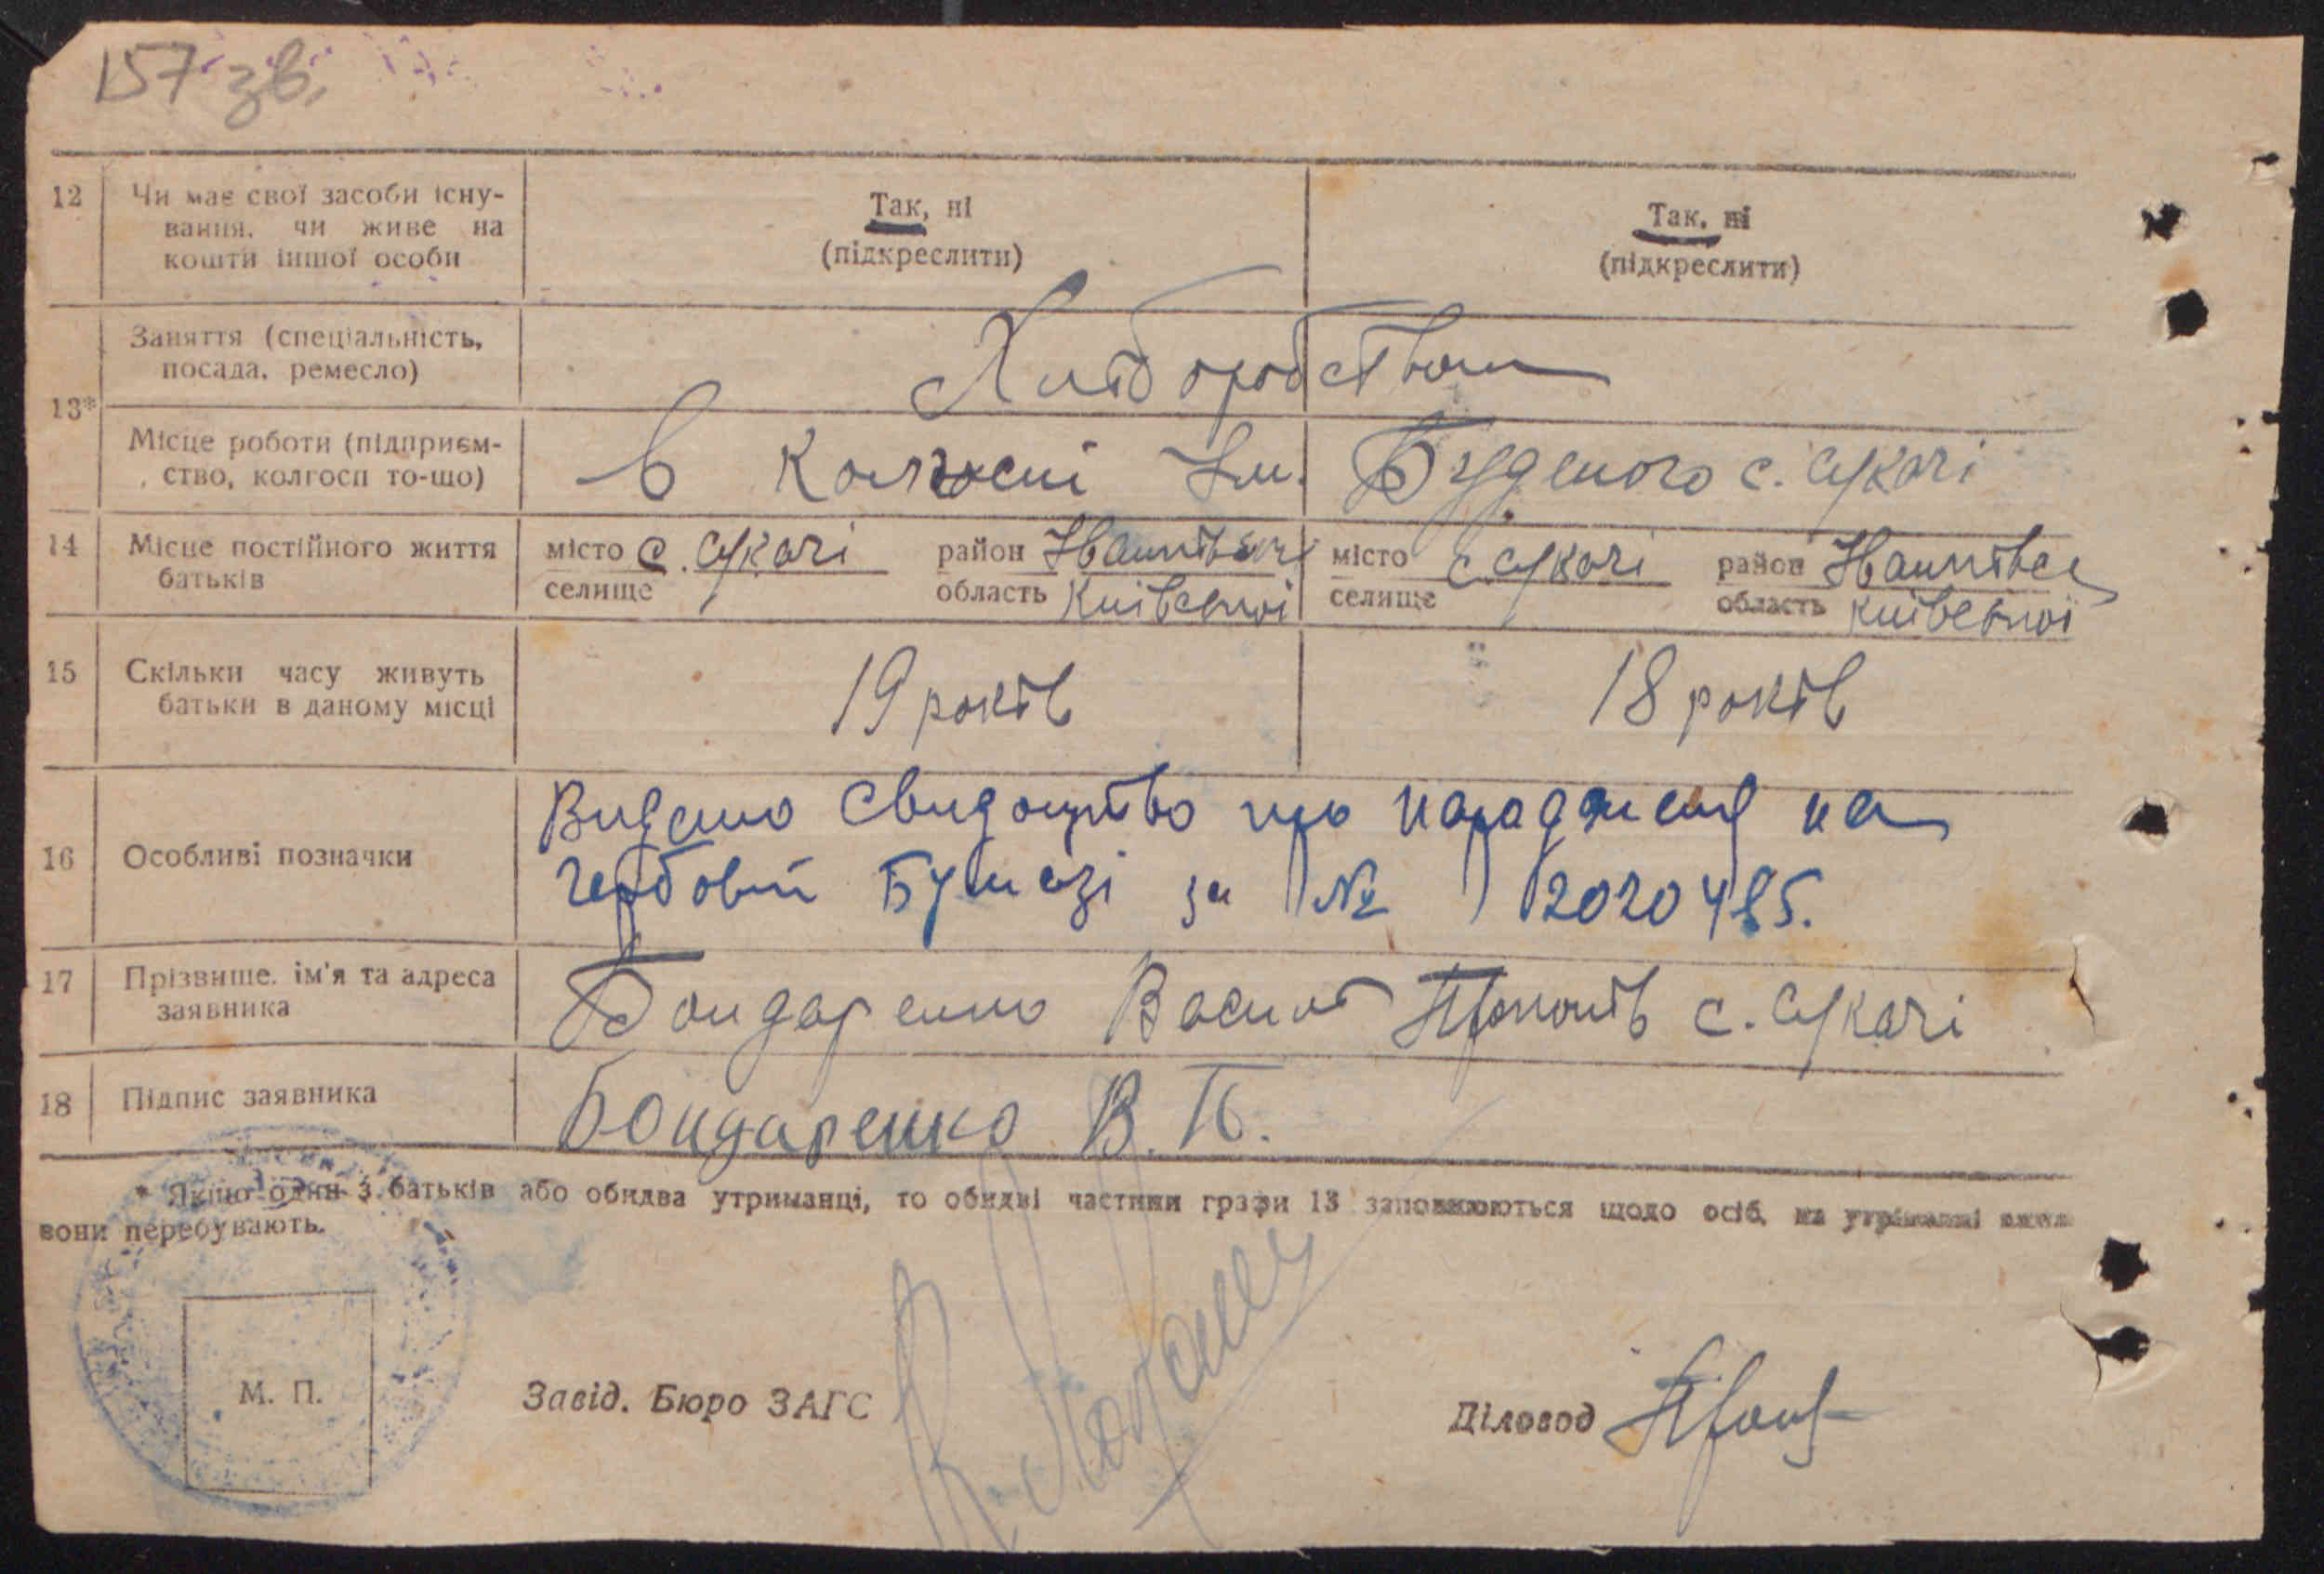 157 зв.
12 Чи має свої засоби існу-
вання, чи живе на
кошти іншої особи
Так, ні
(підкреслити)
Так, ні
(підкреслити)
13*
Заняття (спеціальність,
посада, ремесло)
Хліборобством
Місце роботи (підприєм-
ство, колгосп то-що)
в колгоспі Ім. Буденого с. Сукачі
14 Місце постійного життя
батьків
місто с. Сукачі район
селище область Київської
місто с. Сукачі район
селище область Київської
15 Скільки часу живуть
батьки в даному місці
19 років
18 років
16 Особливі позначки
Видано свидоцтво про народження на
гербовій Бумазі за № 2020485.
17 Прізвище, ім'я та адреса
заявника
Бондаренко Васил с. Сукачі
18 Підпис заявника
Бондаренко В. П.
* Якщо один з батьків або обидва утриманці, то обидві частини графи 13 заповнюються щодо осіб, на утриманні яких
вони перебувають.
М. П.
Завід. Бюро ЗАГС
Діловод